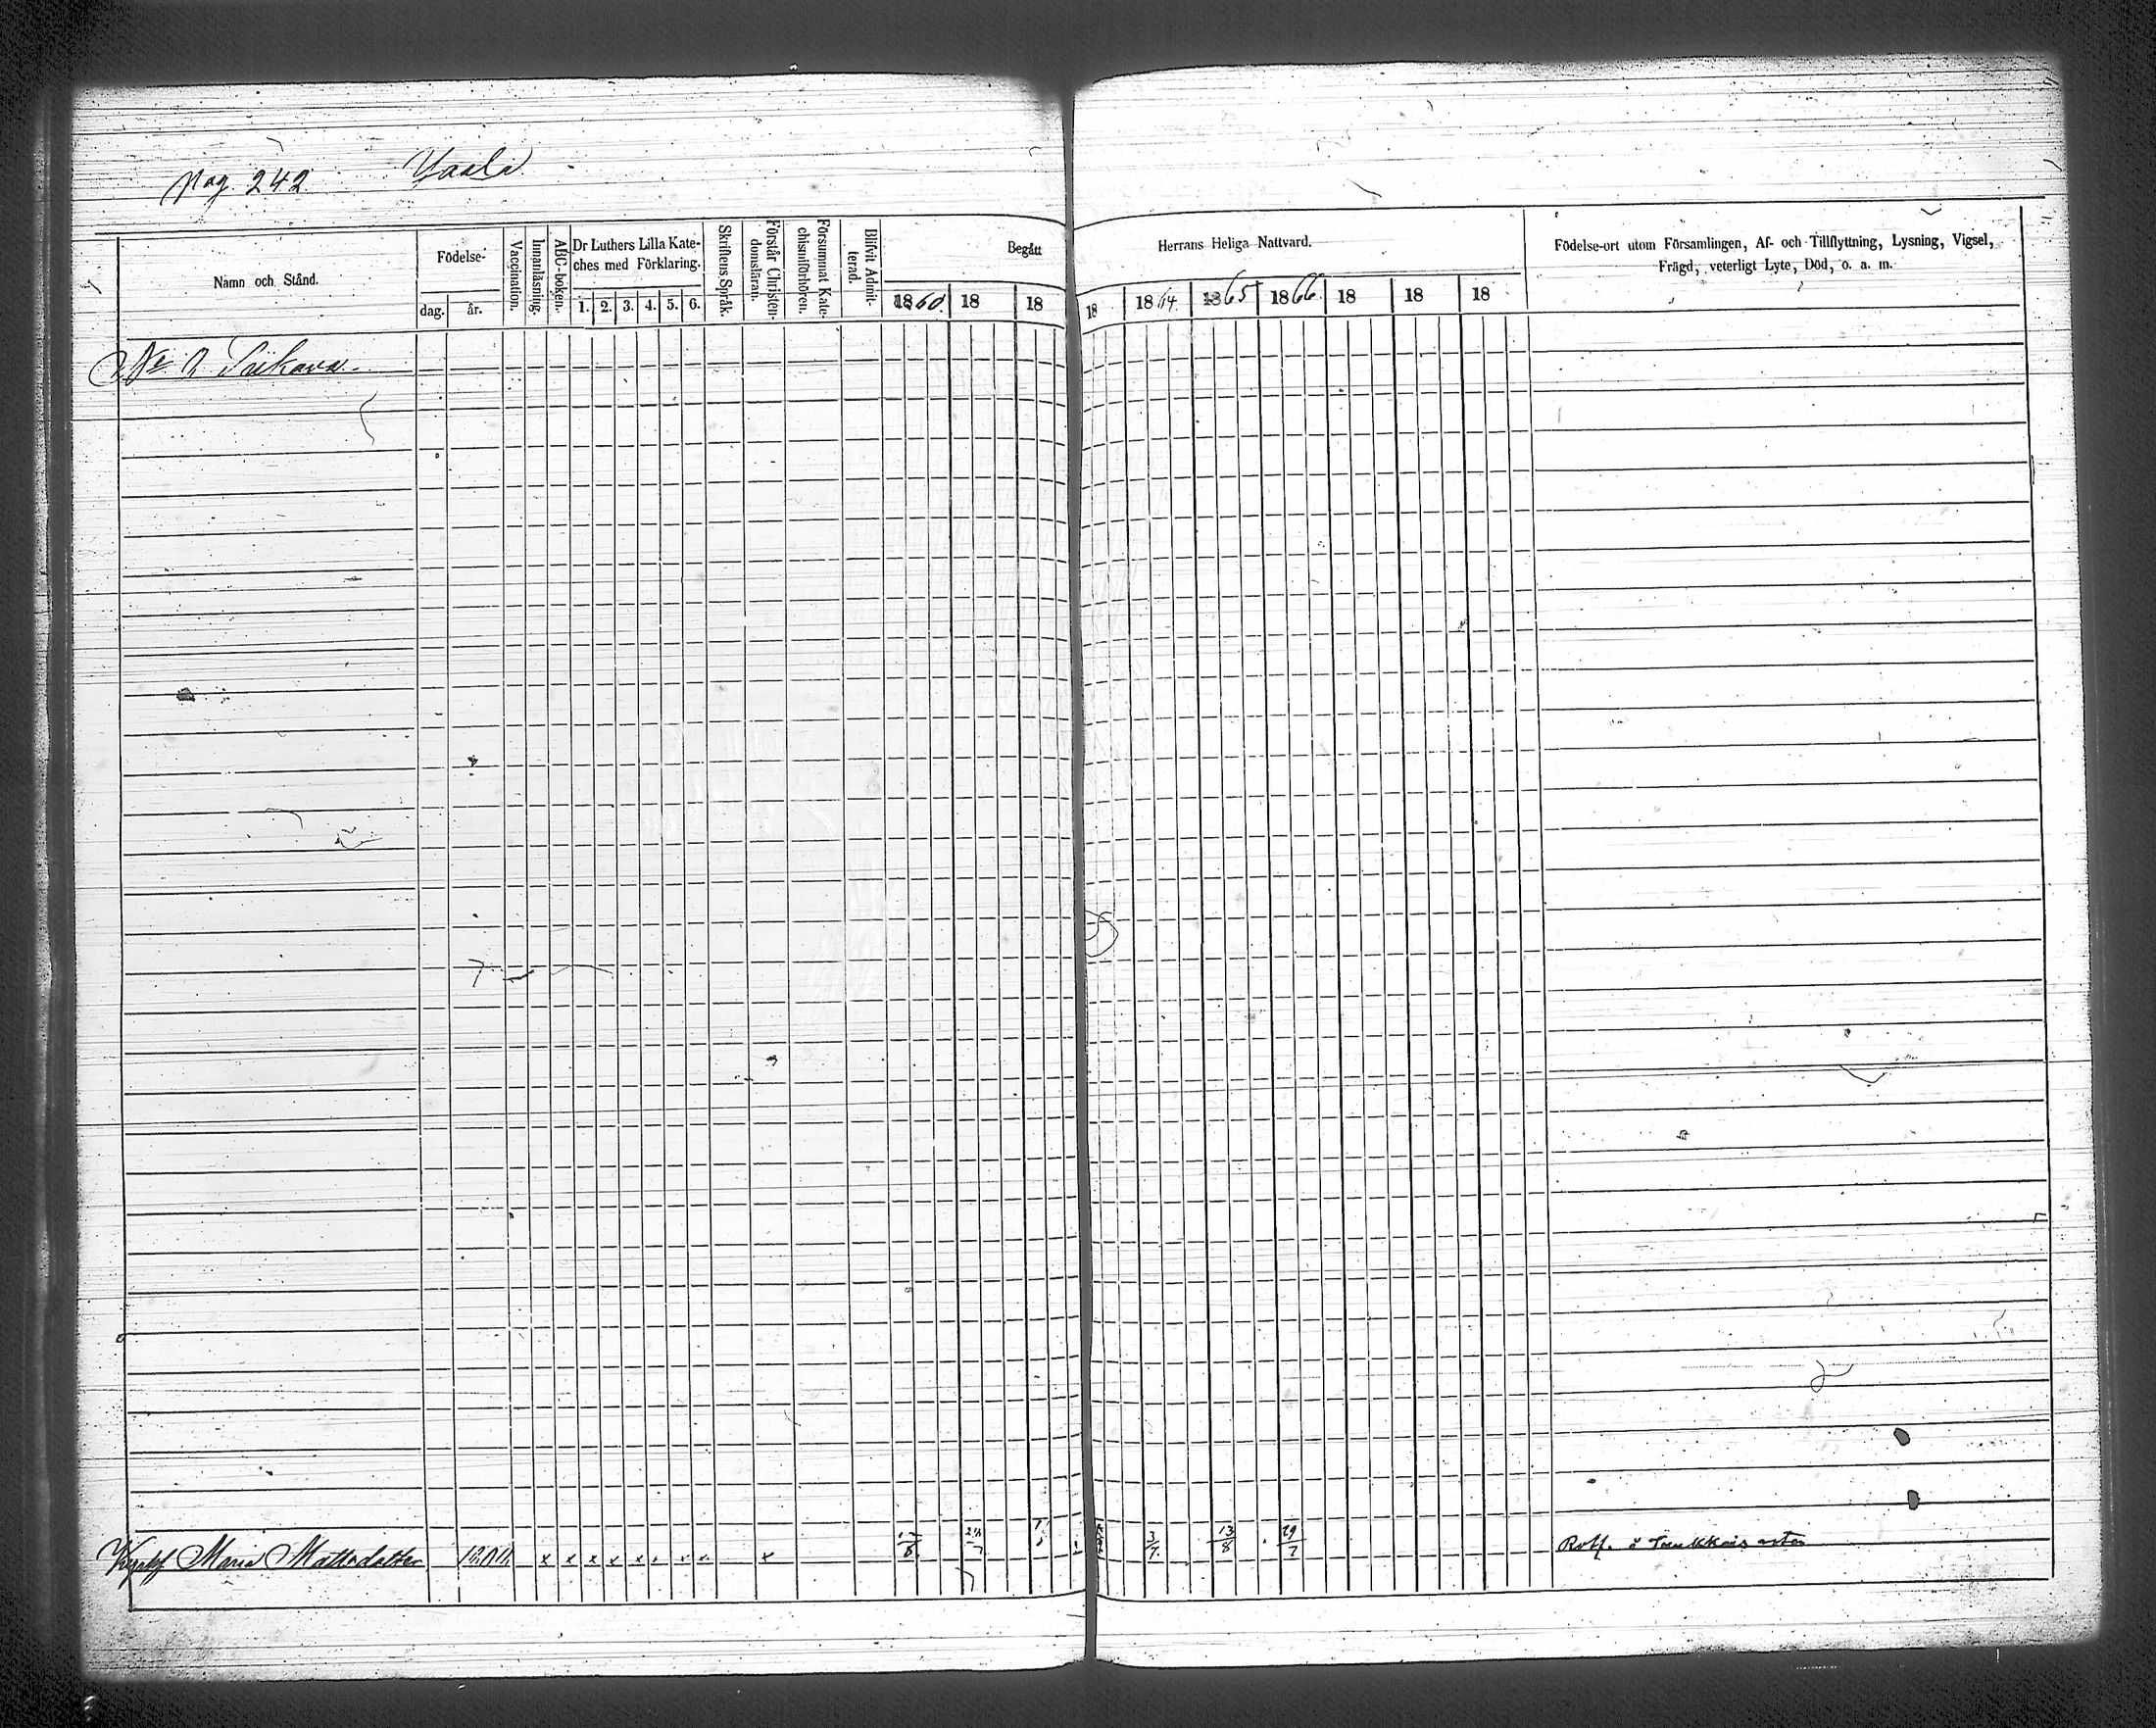 Pag. 242. Vaala
Namn och Stånd.
Födelse-
dag. år.
Vaccination.
Innanläsning.
ABC-boken.
Dr Luthers Lilla Kate-
ches med Förklaring.
1. 2. 3. 4. 5. 6.
Skriftens Språk.
Förstår Christen-
domsläran.
Försummat Kate-
chismiförhören.
Blifvit Admit-
terad.
Begått
1860. 18 18
Herrans Heliga Nattvard.
18 1864. 1865 1866. 18 18 18
Födelse-ort utom Församlingen, Af- och Tillflyttning, Lysning, Vigsel,
Frägd, veterligt Lyte, Död, o. a. m.
Maria Mattsdotter x x x x x x x 3/7. 13/8 29/7